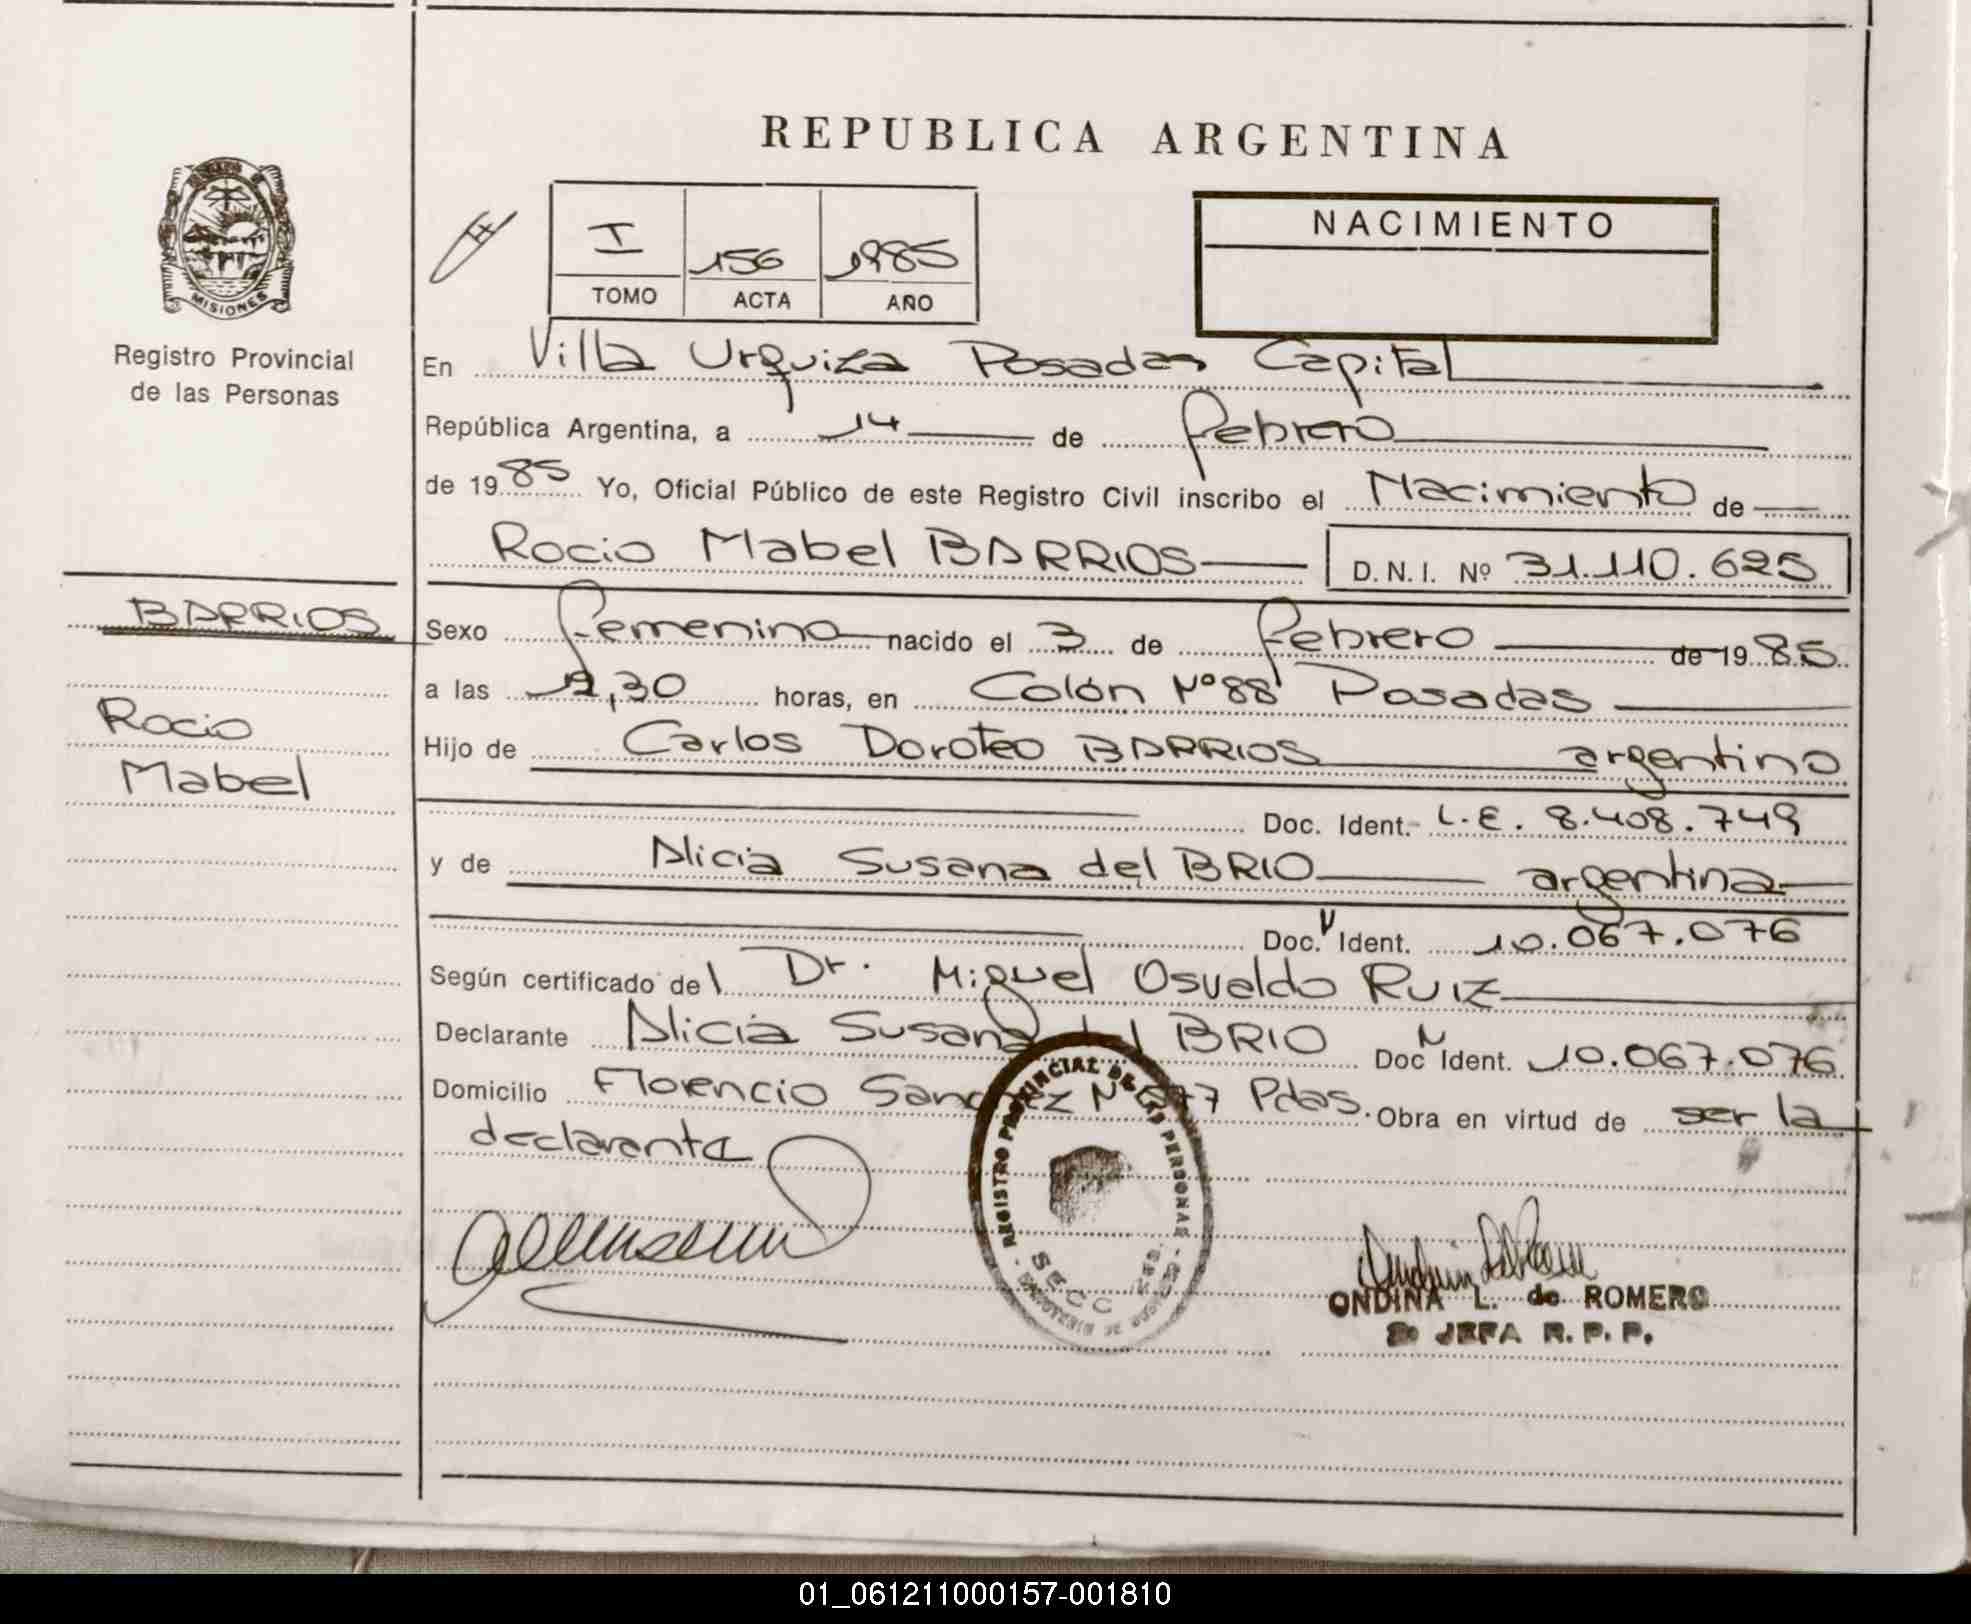 REPUBLICA ARGENTINA
MISIONES
Registro Provincial
de las Personas
I 156 1985
TOMO ACTA AÑO
NACIMIENTO
En Villa Urquiza Posadas Capital
República Argentina, a 14 de febrero
de 1985 Yo, Oficial Público de este Registro Civil inscribo el Nacimiento de
Rocio Mabel BARRIOS D.N.I. Nº 31.110.625
BARRIOS
Rocio
Mabel
Sexo femenino nacido el 3 de febrero de 1985
a las ,30 horas, en Colón Nº 88 Posadas
Hijo de Carlos Doroteo BARRIOS argentino
Doc. Ident. L.E. 8.408.749
y de Alicia Susana del BRIO argentina
Doc. Ident. 10.067.076
Según certificado del Dr. Miguel Osvaldo RUIZ
Declarante Alicia Susana del BRIO Doc N Ident. 10.067.076
Domicilio Florencio Sanchez Nº 77 Pdas. Obra en virtud de ser la
declarante
REGISTRO PROVINCIAL DE LAS PERSONAS
SECC
ONDINA L. de ROMERO
JEFA R.P.P.
01_061211000157-001810